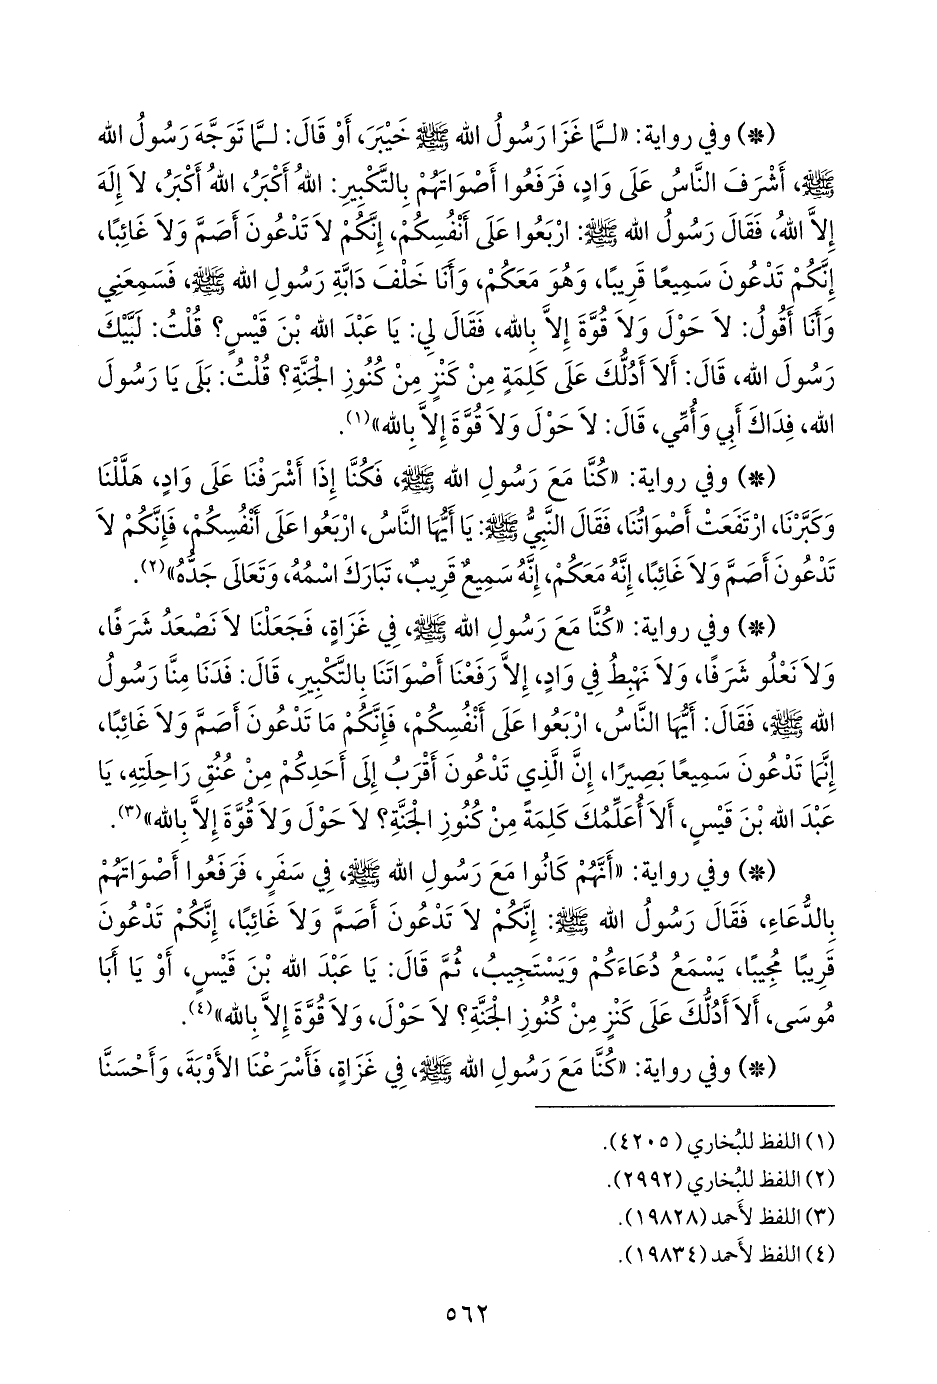 (*) وفي رواية: «لَـمَّا غَزَا رَسُولُ الله ﷺ خَيْبَرَ، أَوْ قَالَ: لَـمَّا تَوَجَّهَ رَسُولُ الله
ﷺ، أَشْرَفَ النَّاسُ عَلَى وَادٍ، فَرَفَعُوا أَصْوَاتَهُمْ بِالتَّكْبِيرِ: اللهُ أَكْبَرُ، اللهُ أَكْبَرُ، لاَ إِلَهَ
إِلاَّ اللهُ، فَقَالَ رَسُولُ الله ﷺ: ارْبَعُوا عَلَى أَنْفُسِكُمْ، إِنَّكُمْ لاَ تَدْعُونَ أَصَمَّ وَلاَ غَائِبًا،
إِنَّكُمْ تَدْعُونَ سَمِيعًا قَرِيبًا، وَهُوَ مَعَكُمْ، وَأَنَا خَلْفَ دَابَّةِ رَسُولِ الله ﷺ، فَسَمِعَنِي
وَأَنَا أَقُولُ: لاَ حَوْلَ وَلاَ قُوَّةَ إِلاَّ بِالله، فَقَالَ لِي: يَا عَبْدَ الله بْنَ قَيْسٍ؟ قُلْتُ: لَبَّيْكَ
رَسُولَ الله، قَالَ: أَلاَ أَدُلُّكَ عَلَى كَلِمَةٍ مِنْ كَنْزٍ مِنْ كُنُوزِ الجَنَّةِ؟ قُلْتُ: بَلَى يَا رَسُولَ
الله، فِدَاكَ أَبِي وَأُمِّي، قَالَ: لاَ حَوْلَ وَلاَ قُوَّةَ إِلاَّ بِالله»(١).
(*) وفي رواية: «كُنَّا مَعَ رَسُولِ الله ﷺ، فَكُنَّا إِذَا أَشْرَفْنَا عَلَى وَادٍ، هَلَّلْنَا
وَكَبَّرْنَا، ارْتَفَعَتْ أَصْوَاتُنَا، فَقَالَ النَّبِيُّ ﷺ: يَا أَيُّهَا النَّاسُ، ارْبَعُوا عَلَى أَنْفُسِكُمْ، فَإِنَّكُمْ لاَ
تَدْعُونَ أَصَمَّ وَلاَ غَائِبًا، إِنَّهُ مَعَكُمْ، إِنَّهُ سَمِيعٌ قَرِيبٌ، تَبَارَكَ اسْمُهُ، وَتَعَالَى جَدُّهُ»(٢).
(*) وفي رواية: «كُنَّا مَعَ رَسُولِ الله ﷺ، فِي غَزَاةٍ، فَجَعَلْنَا لاَ نَصْعَدُ شَرَفًا،
وَلاَ نَعْلُو شَرَفًا، وَلاَ نَهْبِطُ فِي وَادٍ، إِلاَّ رَفَعْنَا أَصْوَاتَنَا بِالتَّكْبِيرِ، قَالَ: فَدَنَا مِنَّا رَسُولُ
الله ﷺ، فَقَالَ: أَيُّهَا النَّاسُ، ارْبَعُوا عَلَى أَنْفُسِكُمْ، فَإِنَّكُمْ مَا تَدْعُونَ أَصَمَّ وَلاَ غَائِبًا،
إِنَّمَا تَدْعُونَ سَمِيعًا بَصِيرًا، إِنَّ الَّذِي تَدْعُونَ أَقْرَبُ إِلَى أَحَدِكُمْ مِنْ عُنُقِ رَاحِلَتِهِ، يَا
عَبْدَ الله بْنَ قَيْسٍ، أَلاَ أُعَلِّمُكَ كَلِمَةً مِنْ كُنُوزِ الجَنَّةِ؟ لاَ حَوْلَ وَلاَ قُوَّةَ إِلاَّ بِالله»(٣).
(*) وفي رواية: «أَنَّهُمْ كَانُوا مَعَ رَسُولِ الله ﷺ، فِي سَفَرٍ، فَرَفَعُوا أَصْوَاتَهُمْ
بِالدُّعَاءِ، فَقَالَ رَسُولُ الله ﷺ: إِنَّكُمْ لاَ تَدْعُونَ أَصَمَّ وَلاَ غَائِبًا، إِنَّكُمْ تَدْعُونَ
قَرِيبًا مُجِيبًا، يَسْمَعُ دُعَاءَكُمْ وَيَسْتَجِيبُ، ثُمَّ قَالَ: يَا عَبْدَ الله بْنَ قَيْسٍ، أَوْ يَا أَبَا
مُوسَى، أَلاَ أَدُلُّكَ عَلَى كَنْزٍ مِنْ كُنُوزِ الجَنَّةِ؟ لاَ حَوْلَ، وَلاَ قُوَّةَ إِلاَّ بِالله»(٤).
(*) وفي رواية: «كُنَّا مَعَ رَسُولِ الله ﷺ، فِي غَزَاةٍ، فَأَسْرَعْنَا الأَوْبَةَ، وَأَحْسَنَّا
(١) اللفظ للبُخاري (٤٢٠٥).
(٢) اللفظ للبُخاري (٢٩٩٢).
(٣) اللفظ لأَحمد (١٩٨٢٨).
(٤) اللفظ لأَحمد (١٩٨٣٤).
٥٦٢